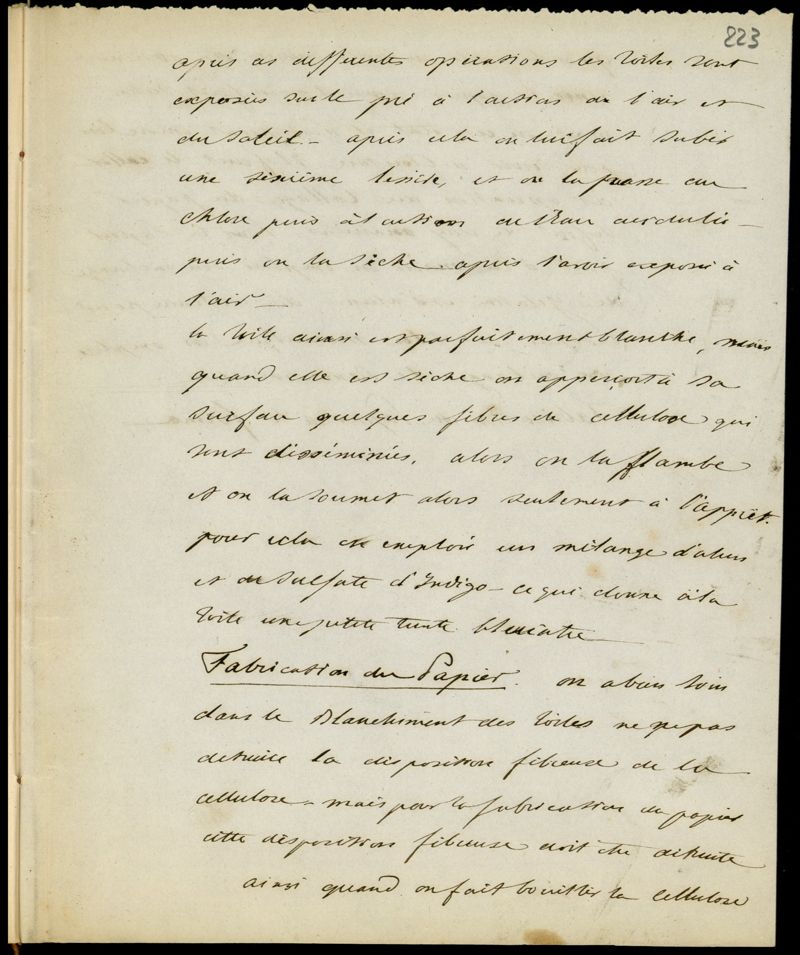 223
après ces differentes operations les toiles sont
exposées sur le pré à l'action de l'air et
du soleil - après cela on lui fait subir
une sixième lessive, et on la passe au
chlore puis à l'action de l'eau acidulée -
puis on la sèche après l'avoir exposée à
l'air -
la toile ainsi est parfaitement blanche, mais
quand elle est sèche on apperçoit à sa
surface quelques fibres de cellulose qui
sont disséminées. alors on la flambe
et on la soumet alors seulement à l'apprêt.
pour cela on emploie un mélange d'alun
et de sulfate d'Indigo - ce qui donne à la
toile une petite teinte bleuâtre
Fabrication du Papier. on a bien soin
dans le Blanchiment des toiles ne pas
detruire la disposition fibreuse de la
cellulose - mais pour la fabrication du papier
cette disposition fibreuse doit être detruite
ainsi quand on fait bouillir la cellulose